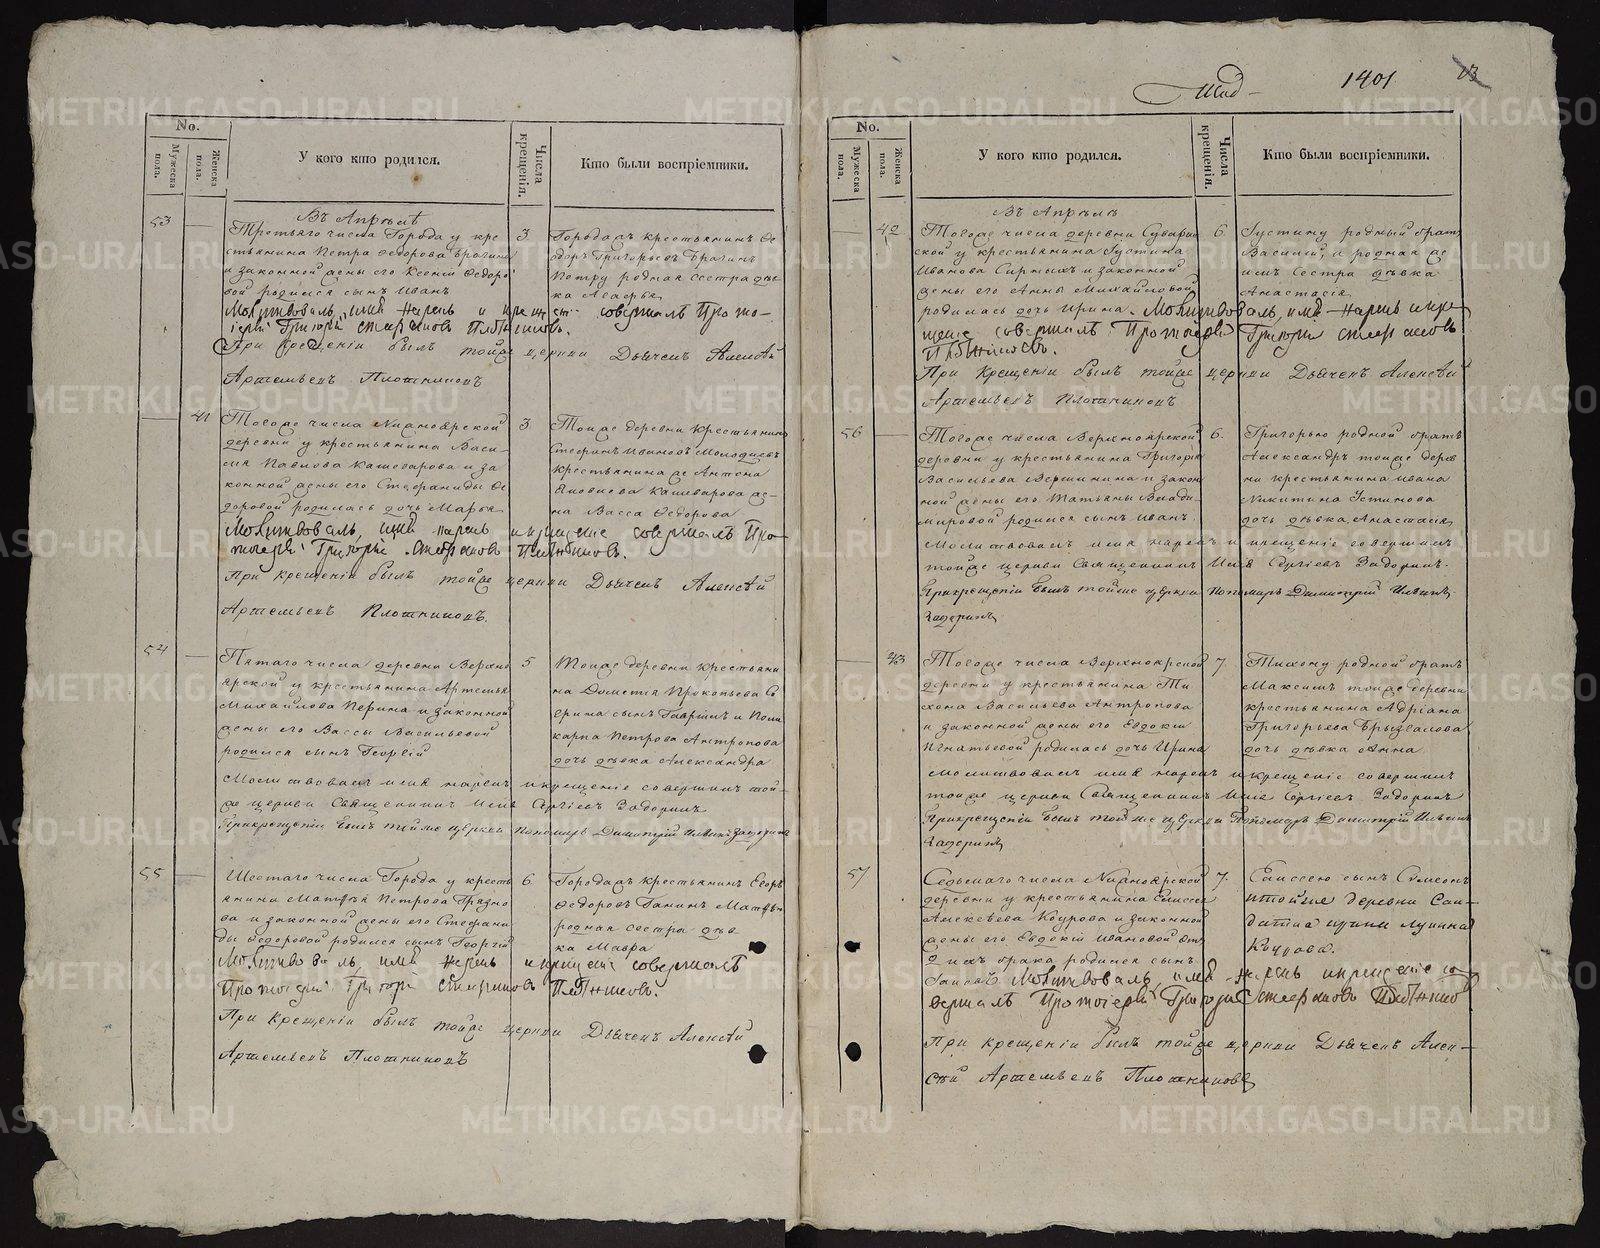 No.
Мужеска пола.
Женска пола.
У кого кто родился.
Числа крещенія.
Кто были воспріемники.
Въ Апрѣлѣ
53
Третьяго числа Города у кре
стьянина Петра Ѳедорова Брагина
и законной жены его Ксеніи Ѳедоро
вой родился сынъ Иванъ
3
Городадъ крестьянинъ Ѳе
доръ Григорьевъ Брагинъ
Петру родная сестра дѣв
ка Агафья
Молитвовалъ, имя нарекъ и крещеніе совершалъ Прото-
іерей Григорій Стефановъ Плотниковъ.
При крещеніи былъ тойже церкви Дьячекъ Алексѣй
Артемьевъ Плотниковъ
41
Тогоже числа Нижноярской
деревни у крестьянина Васи-
лія Павлова Кашеварова и за
конной жены его Стефаниды Ѳе
доровой родилась дочь Марья
3
Тояже деревни крестьянинъ
Стефанъ Ивановъ Молодцевъ
крестьянина же Антона
Яковлева Кашеварова же-
на Васса Ѳедорова
Молитвовалъ, имя нарекъ и крещеніе совершалъ Про-
тоіерей Григорій Стефановъ Плотниковъ.
При крещеніи былъ тойже церкви Дьячекъ Алексѣй
Артемьевъ Плотниковъ.
54
Пятаго числа деревни Верхно
ярской у крестьянина Артемья
Михайлова Перина и законной
жены его Вассы Васильевой
родился сынъ Георгій
5
Тояже деревни крестьяни
на Дометія Прокопьева
сынъ Гавріилъ и Поли
карпа Петрова Антропова
дочь дѣвка Александра
Молитвовалъ имя нарекъ и крещеніе совершилъ той-
же церкви Священникъ Илія Сергіевъ Задоринъ
При крещеніи былъ тойже церкви пономарь Димитрій Ильинъ Задоринъ
55
Шестаго числа Города у кресть
янина Матѳѣя Петрова Грязно
ва и законной жены его Стефани
ды Ѳедоровой родился сынъ Георгій
6
Городадъ крестьянинъ Егоръ
Ѳедоровъ Ганинъ Матѳѣю
родная сестра дѣв
ка Мавра
Молитвовалъ, имя нарекъ и крещеніе совершалъ
Протоіерей Григорій Стефановъ Плотниковъ.
При крещеніи былъ тойже церкви Дьячекъ Алексѣй
Артемьевъ Плотниковъ
1401
13
No.
Мужеска пола.
Женска пола.
У кого кто родился.
Числа крещенія.
Кто были воспріемники.
Въ Апрѣлѣ
42
Тогоже числа деревни Суварыш
ской у крестьянина Густина
Иванова Сирныхъ и законной
жены его Анны Михайловой
родилась дочь Ирина.
6
Густину родный братъ
Василій, и родная же
имъ сестра дѣвка
Анастасія
Молитвовалъ, имя нарекъ и кре
щеніе совершалъ Протоіерей Григорій Стефановъ
Плотниковъ.
При крещеніи былъ тойже церкви Дьячекъ Алексѣй
Артемьевъ Плотниковъ
56
Тогоже числа Верхноярской
деревни у крестьянина Григорья
Васильева Вершинина и закон
ной жены его Татьяны Влади
мировой родился сынъ Иванъ
6.
Григорью родной братъ
Александръ тояже дерев
ни крестьянина Ивана
Никитина Устинова
дочь дѣвка Анастасія
Молитвовалъ имя нарекъ и крещеніе совершилъ
тойже церкви Священникъ Илія Сергіевъ Задоринъ.
При крещеніи былъ тойже церкви пономарь Димитрій Ильинъ
Задоринъ
43
Тогоже числа Верхноярской
деревни у крестьянина Ти
хона Васильева Антропова
и законной жены его Евдокіи
Игнатьевой родилась дочь Ирина
7.
Тихону родной братъ
Максимъ тояже деревни
крестьянина Адріана
Григорьева Брызгалова
дочь дѣвка Анна
Молитвовалъ имя нарекъ и крещеніе совершилъ
тойже церкви Священникъ Илія Сергіевъ Задоринъ
При крещеніи былъ тойже церкви Пономарь Димитрій Ильинъ
Задоринъ
57
Седьмаго числа Нижноярской
деревни у крестьянина Елисея
Алексѣева Коурова и законной
жены его Евдокіи Ивановой отъ
2 ихъ брака родился сынъ
7.
Елисею сынъ Симеонъ
и тойже деревни Сол-
датка
Коурова.
Молитвовалъ, имя нарекъ и крещеніе со
вершалъ Протоіерей Григорій Стефановъ Плотников
При крещеніи былъ тойже церкви Дьячекъ Алек-
сѣй Артемьевъ Плотниковъ
METRIKI.GASO-URAL.RU